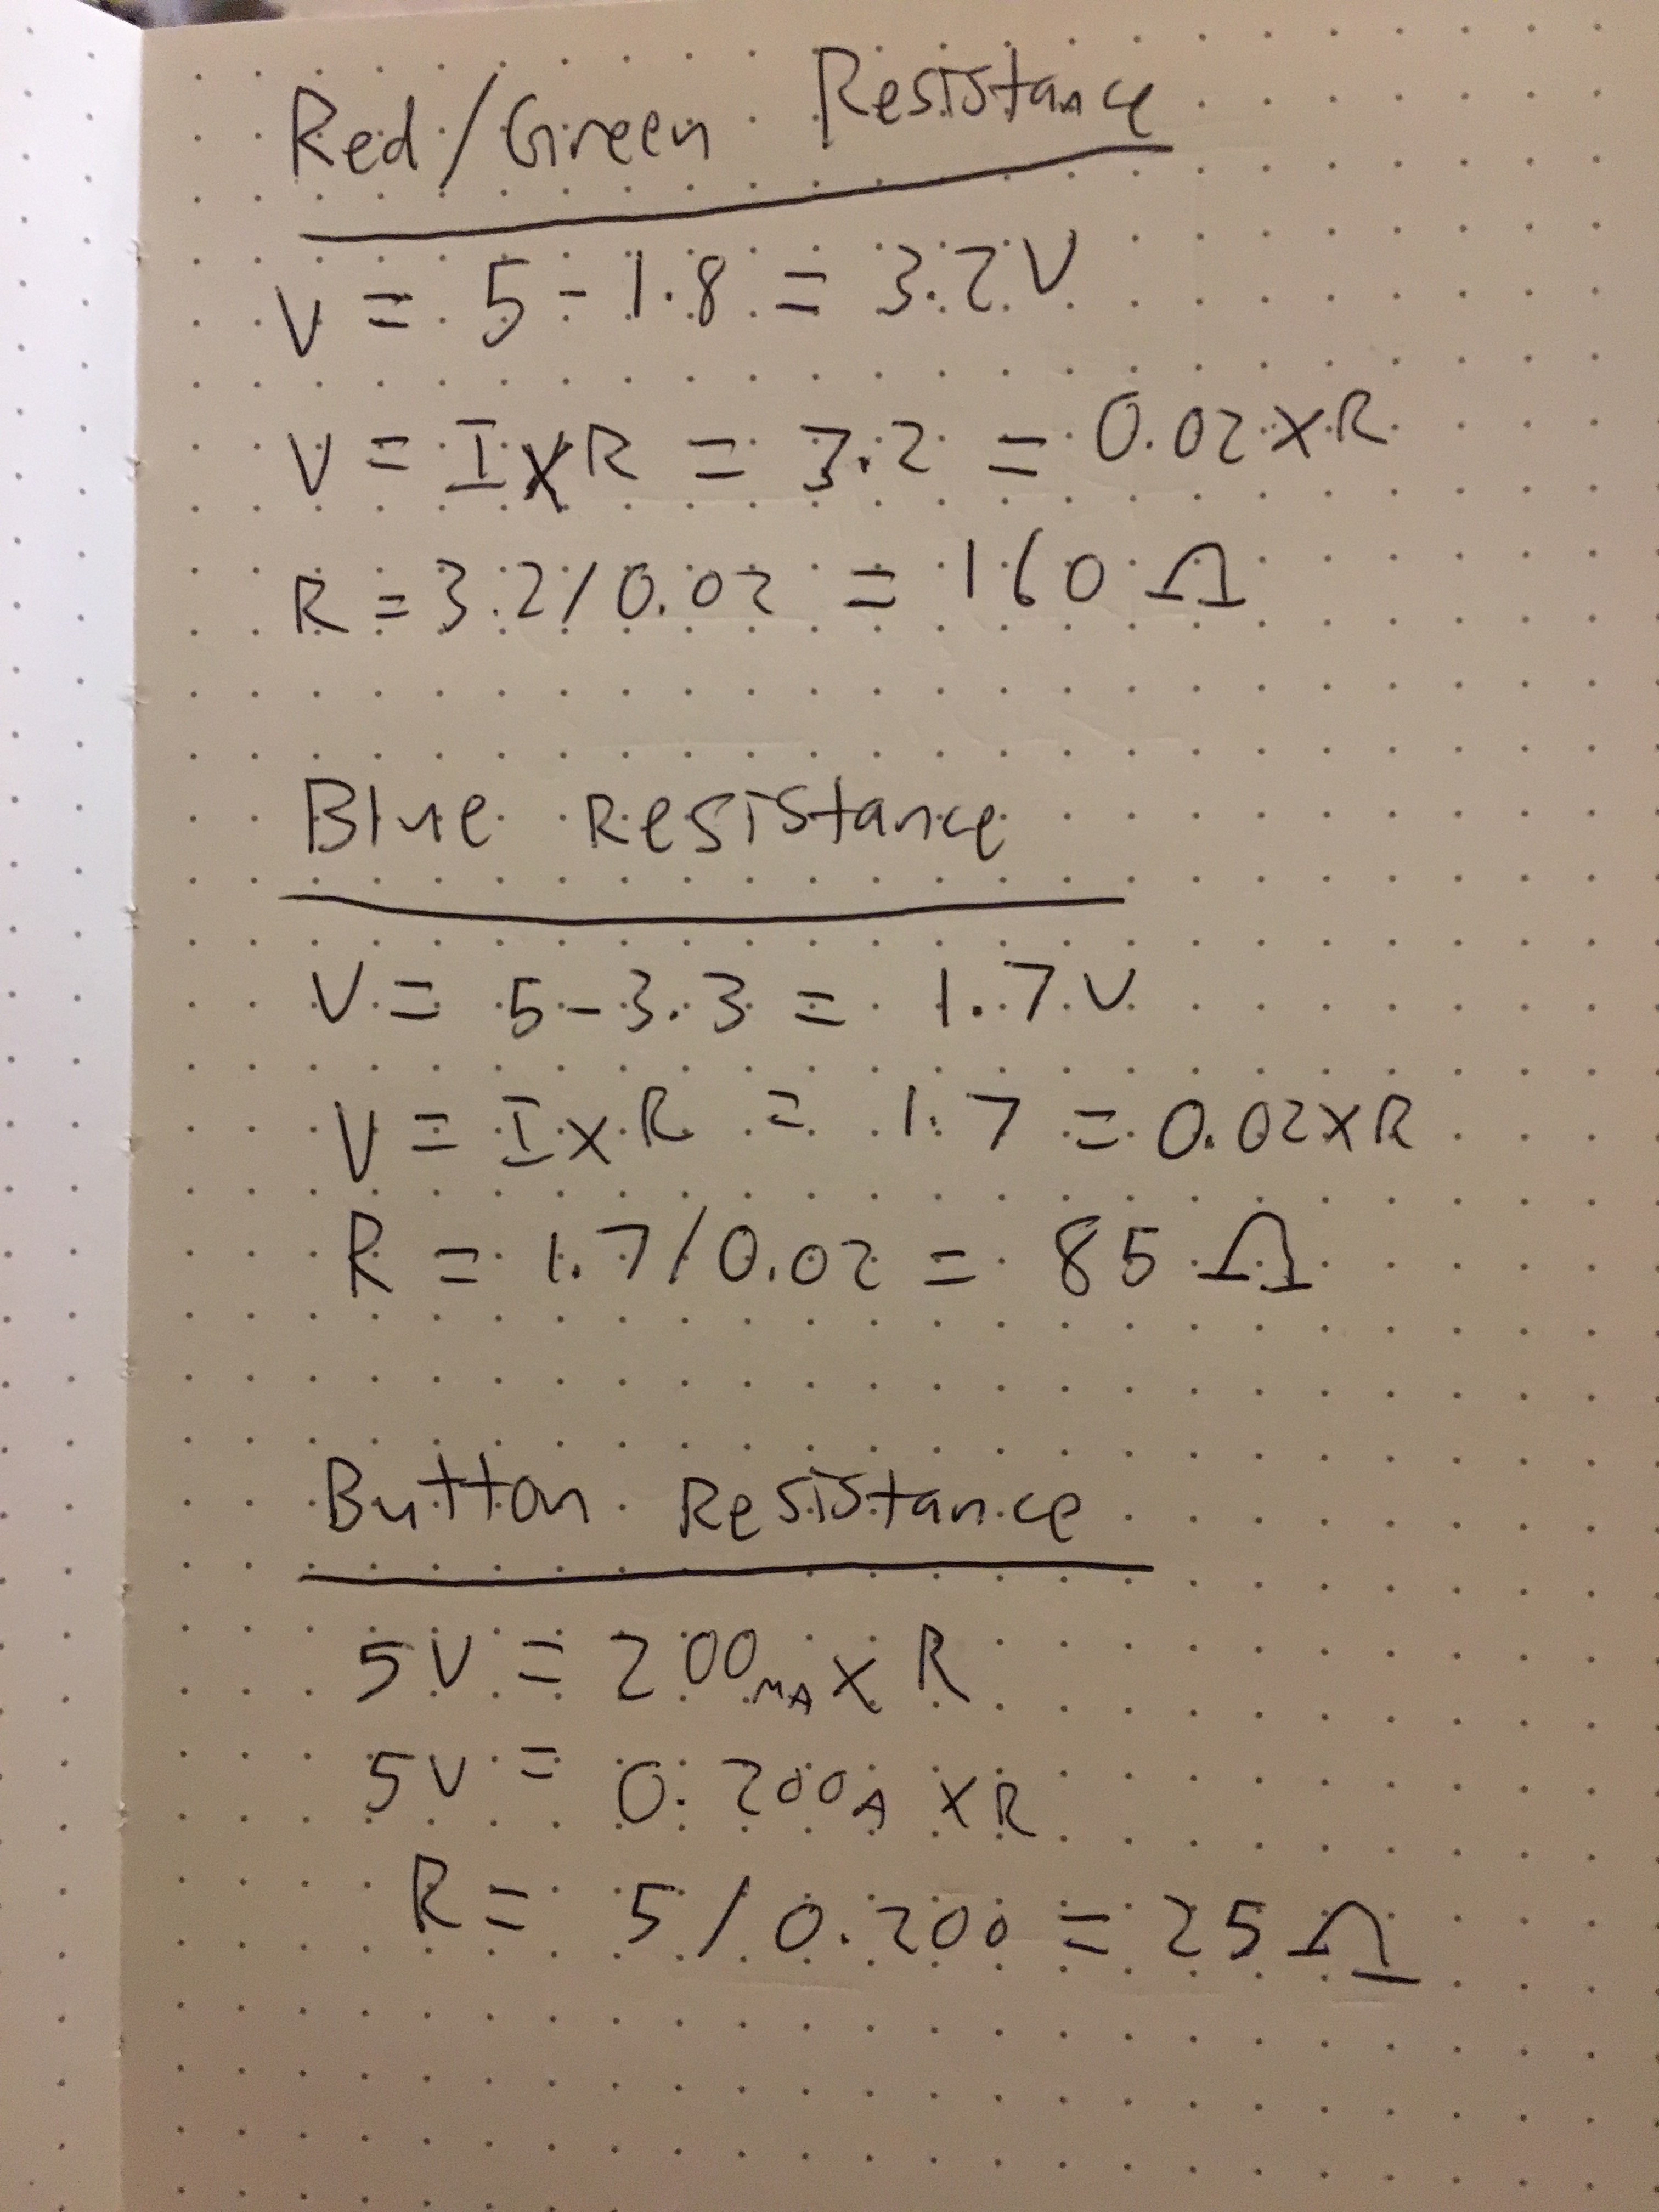 Red/Green Resistance
V = 5 - 1.8 = 3.2V
V = I x R = 3.2 = 0.02 x R
R = 3.2 / 0.02 = 160 Ω
Blue Resistance
V = 5 - 3.3 = 1.7V
V = I x R = 1.7 = 0.02 x R
R = 1.7 / 0.02 = 85 Ω
Button Resistance
5V = 200mA x R
5V = 0.200A x R
R = 5 / 0.200 = 25 Ω